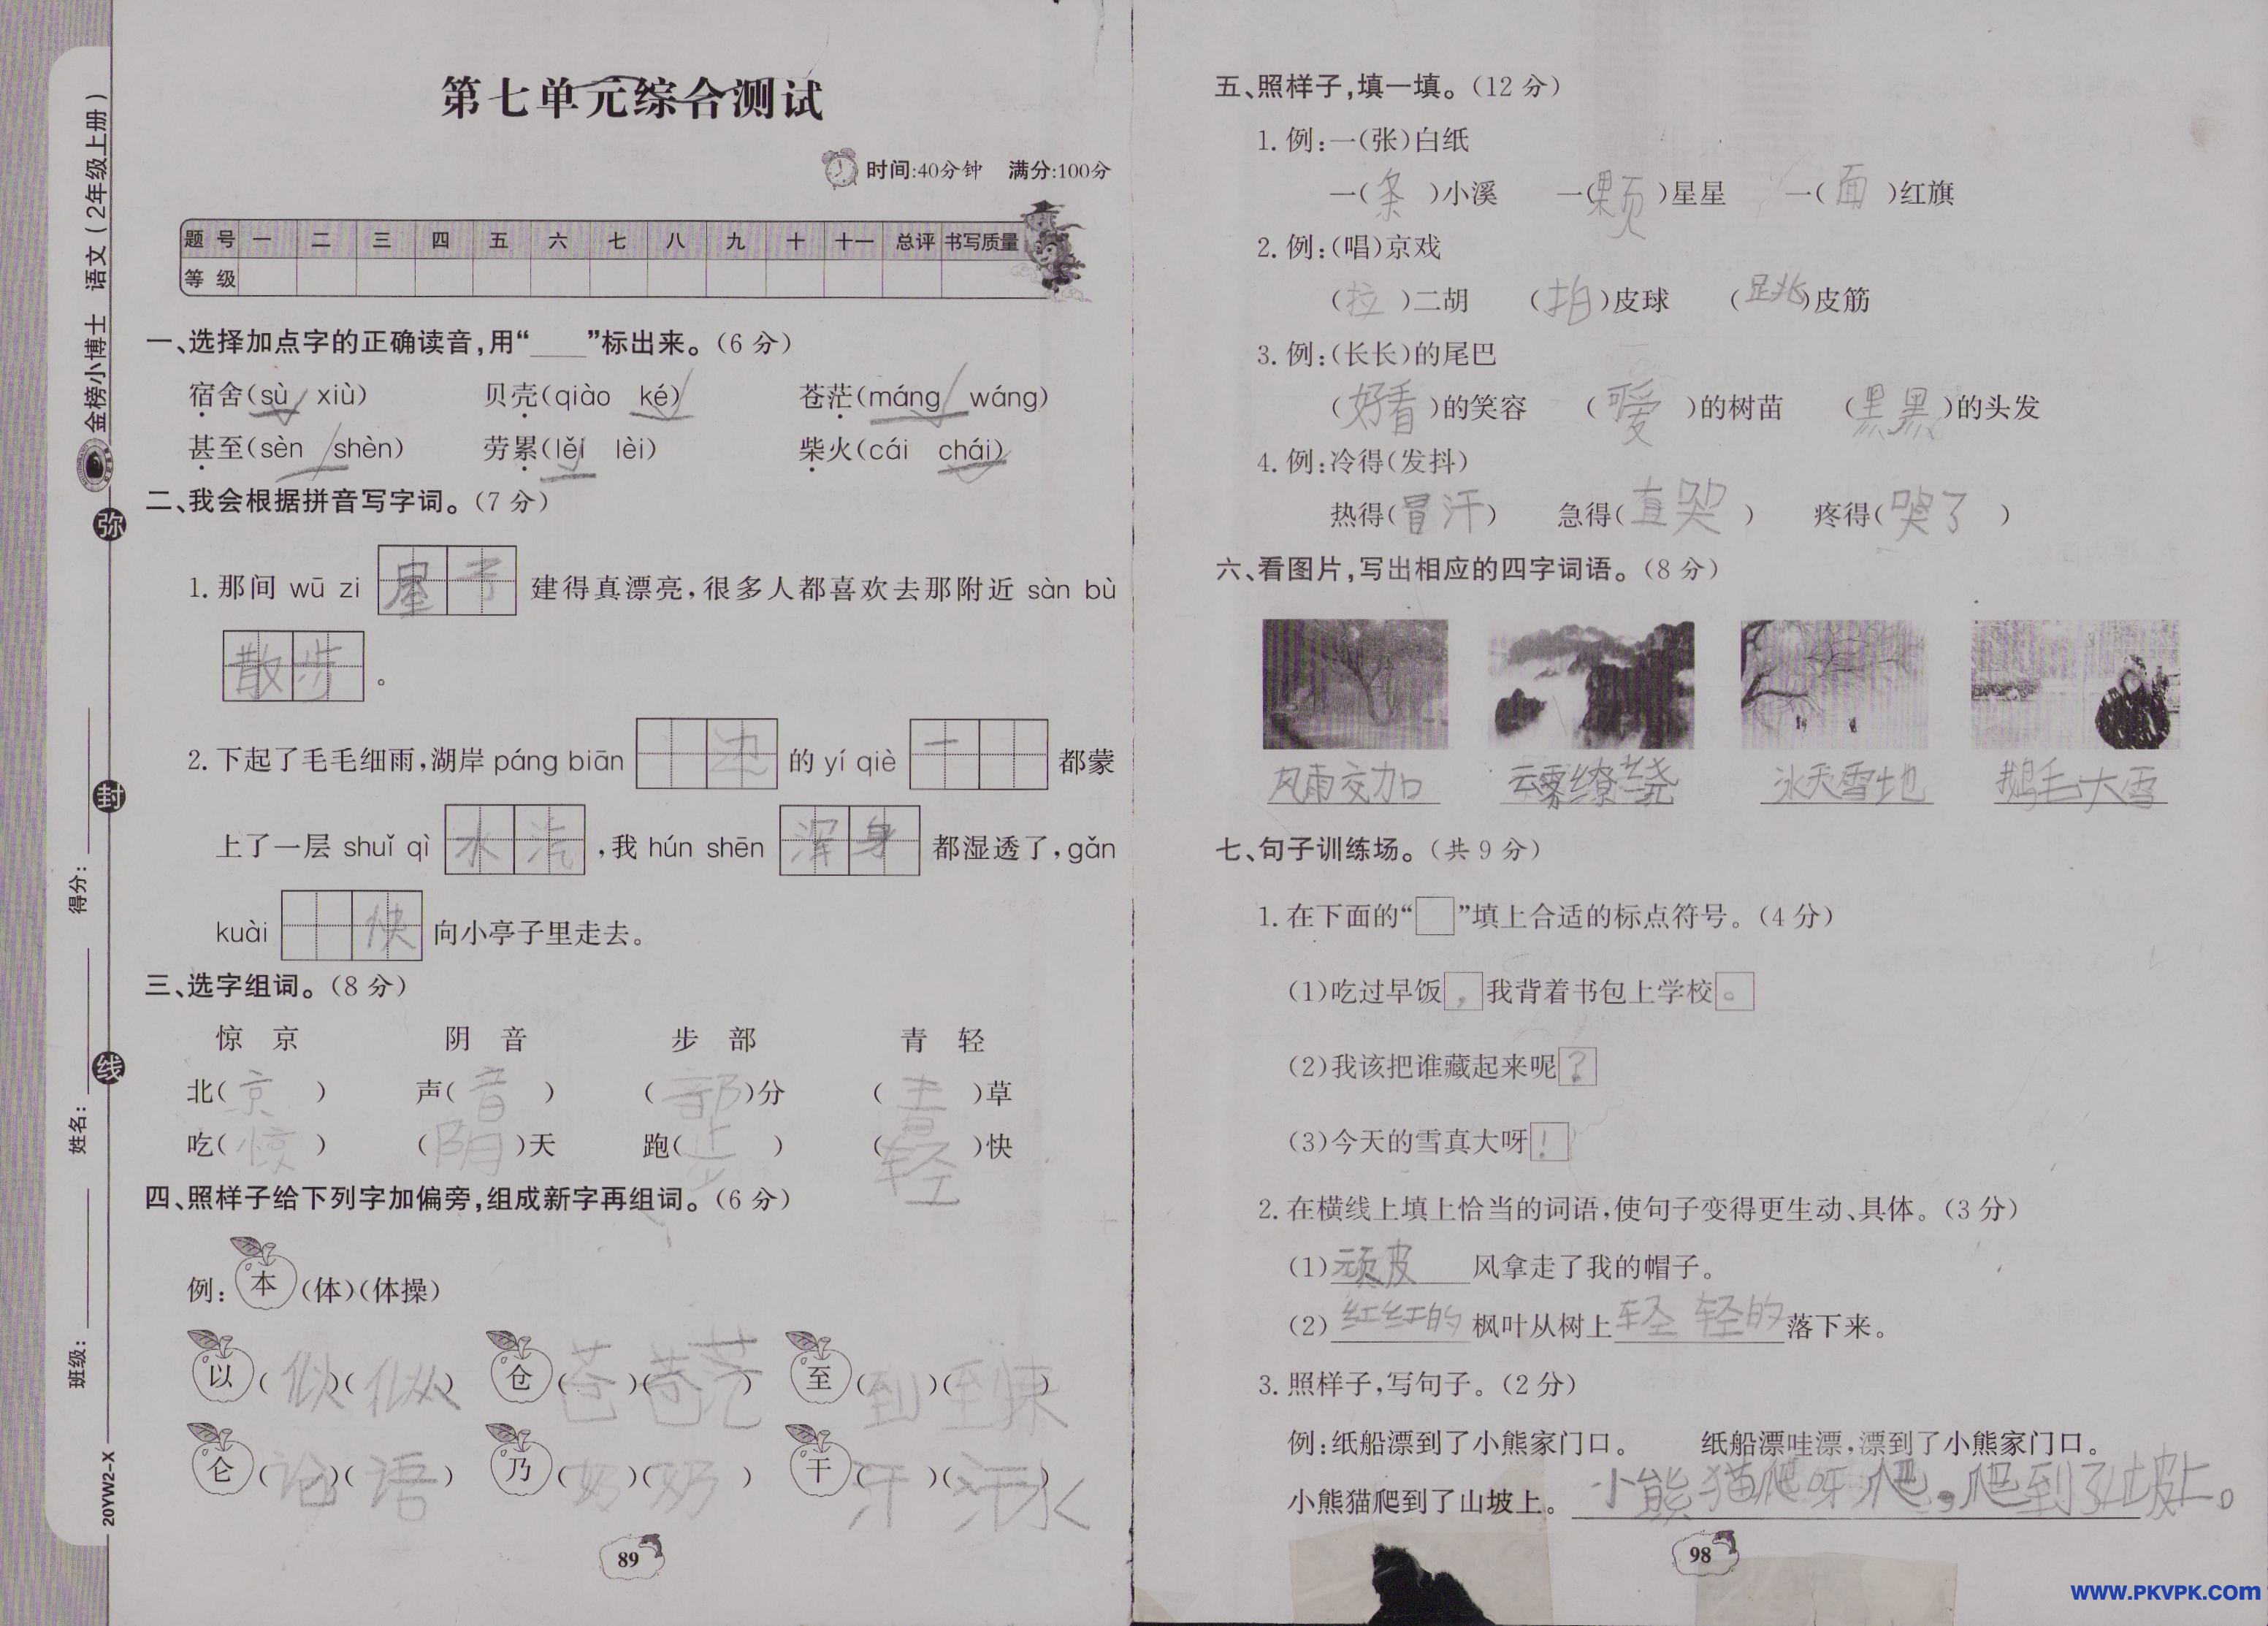 金榜小博士 语文(2年级上册)
弥
封
线
得分:
姓名:
班级:
20YW2-X
第七单元综合测试
时间:40分钟 满分:100分
题号 一 二 三 四 五 六 七 八 九 十 十一 总评 书写质量
等级
一、选择加点字的正确读音,用“____”标出来。(6分)
宿舍(sù xiù) 贝壳(qiào ké) 苍茫(máng wáng)
甚至(sèn shèn) 劳累(lěi lèi) 柴火(cái chái)
二、我会根据拼音写字词。(7分)
1. 那间 wū zi 屋子 建得真漂亮,很多人都喜欢去那附近 sàn bù
散步。
2. 下起了毛毛细雨,湖岸 páng biān 边 的 yí qiè 一 都蒙
上了一层 shuǐ qì 水汽,我 hún shēn 浑身 都湿透了,gǎn
kuài 快 向小亭子里走去。
三、选字组词。(8分)
惊 京 阴 音 步 部 青 轻
北(京) 声(音) (部)分 (青)草
吃(惊) (阴)天 跑(步) (轻)快
四、照样子给下列字加偏旁,组成新字再组词。(6分)
例: 本 (体)(体操)
以(似)( ) 仓(苍)(苍茫) 至(到)( )
仑(论)(语) 乃(奶)(奶) 干(汗)(汗水)
89
五、照样子,填一填。(12分)
1. 例:一(张)白纸
一(条)小溪 一(颗)星星 一(面)红旗
2. 例:(唱)京戏
(拉)二胡 (拍)皮球 (跳)皮筋
3. 例:(长长)的尾巴
(好看)的笑容 (可爱)的树苗 (黑黑)的头发
4. 例:冷得(发抖)
热得(冒汗) 急得(直哭) 疼得(哭了)
六、看图片,写出相应的四字词语。(8分)
风雨交加 云雾缭绕 冰天雪地 鹅毛大雪
七、句子训练场。(共9分)
1. 在下面的“□”填上合适的标点符号。(4分)
(1)吃过早饭,我背着书包上学校。
(2)我该把谁藏起来呢?
(3)今天的雪真大呀!
2. 在横线上填上恰当的词语,使句子变得更生动、具体。(3分)
(1)顽皮 风拿走了我的帽子。
(2)红红的 枫叶从树上轻轻的落下来。
3. 照样子,写句子。(2分)
例:纸船漂到了小熊家门口。 纸船漂哇漂,漂到了小熊家门口。
小熊猫爬到了山坡上。 小熊猫爬呀爬,爬到了山坡上。
98
www.PKVPK.com